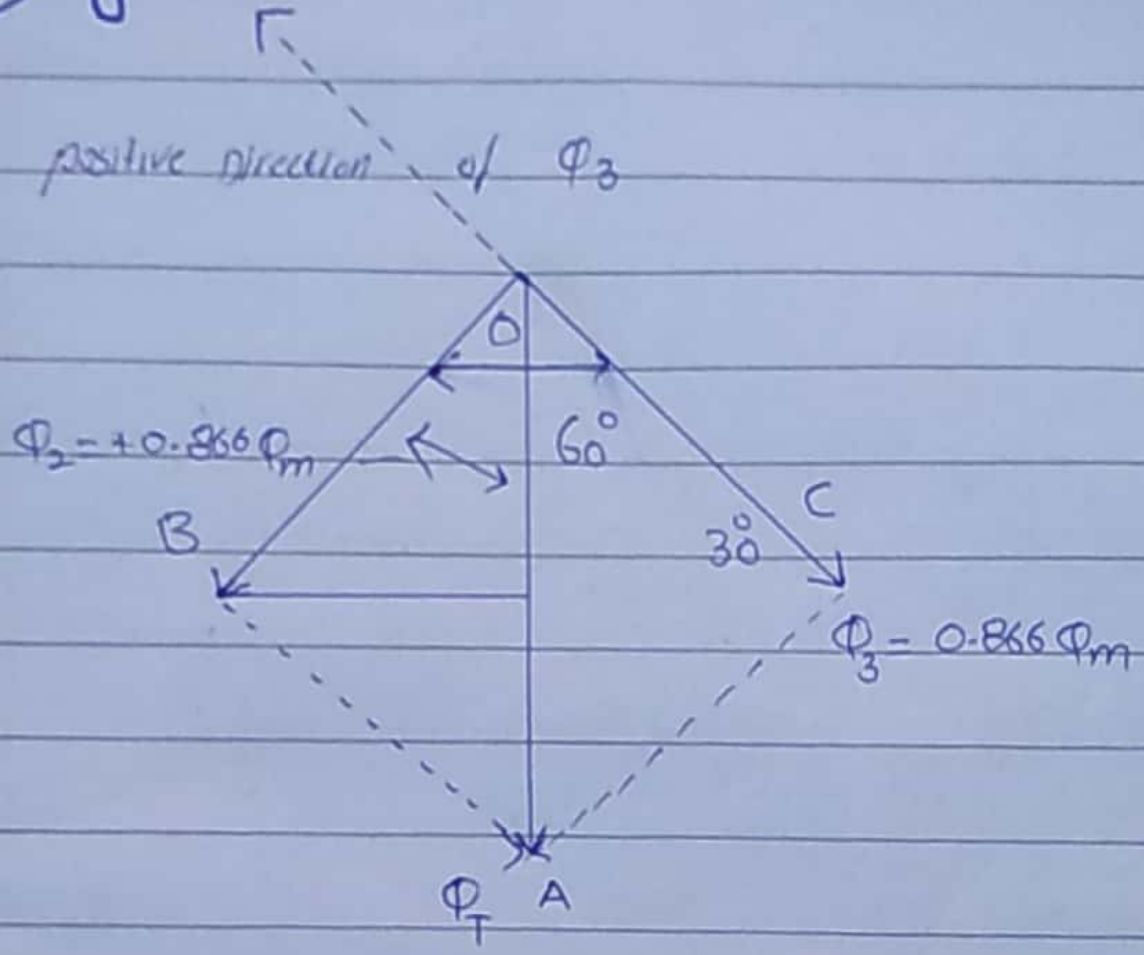 positive Direction of Φ3
O
Φ2 = +0.866 Φm
60°
C
B
30°
Φ3 = 0.866 Φm
ΦT A